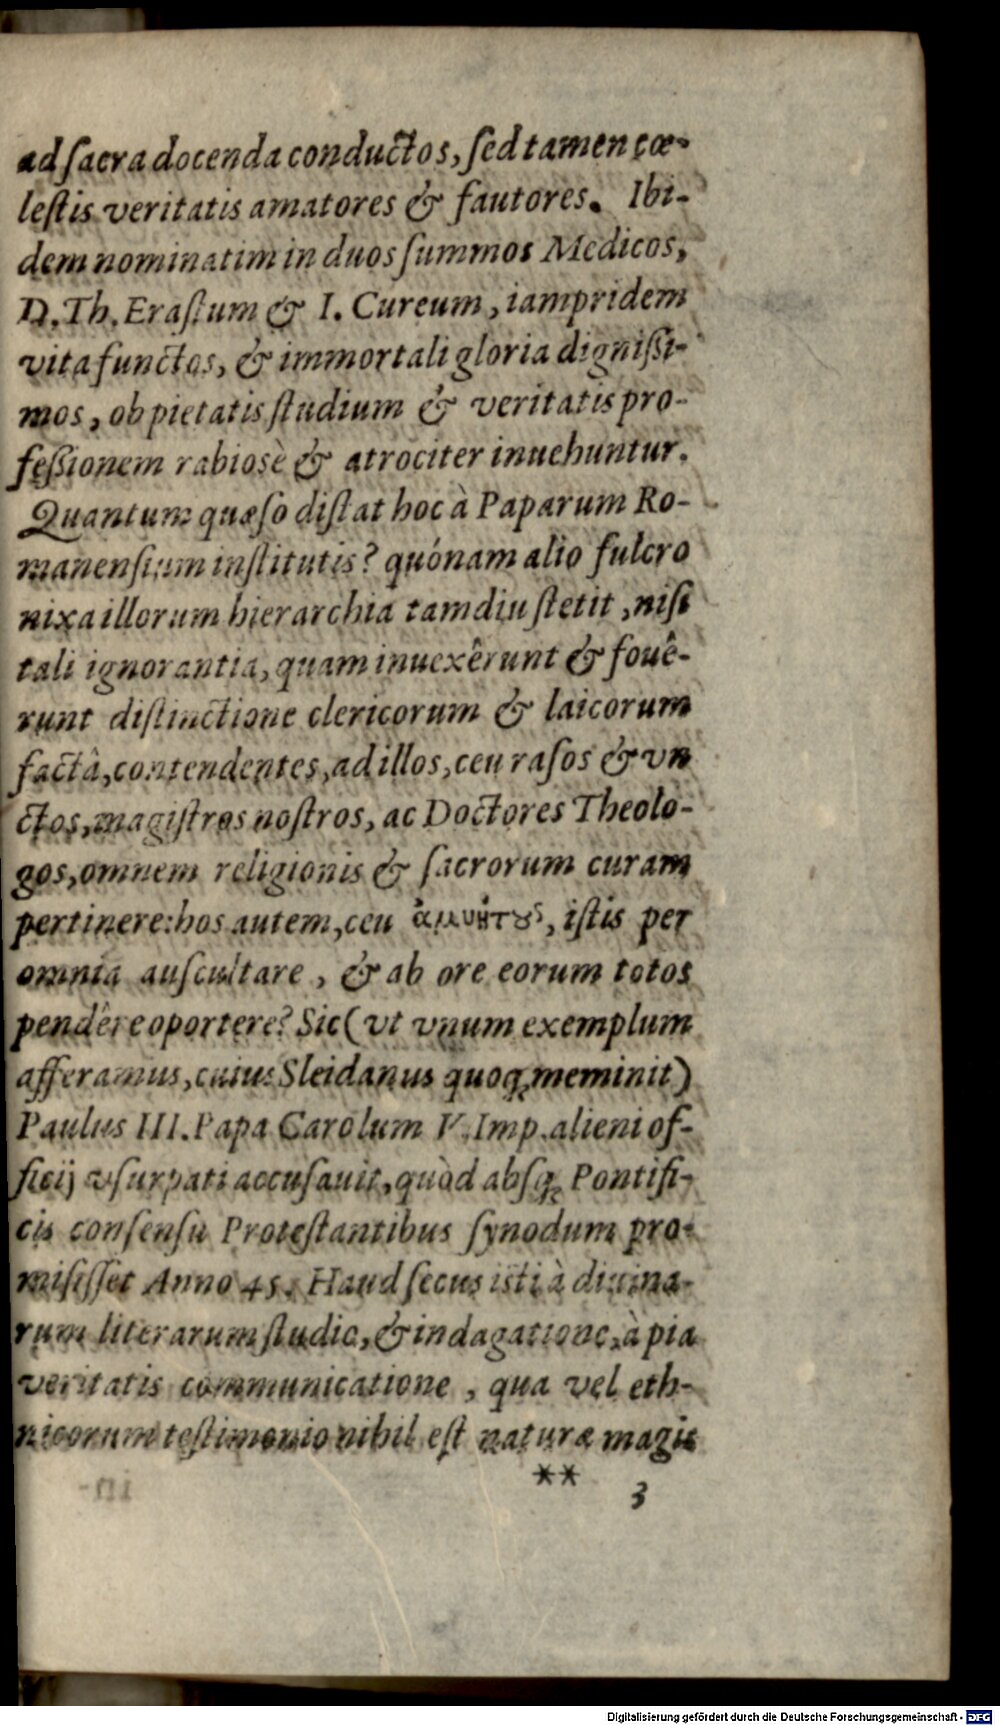 ad ſacra docenda conductos, ſed tamen cœ-
leſtis veritatis amatores & fautores. Ibi-
dem nominatim in duos ſummos Medicos,
D. Th. Eraſtum & I. Cureum, iampridem
vita functos, & immortali gloria digniſſi-
mos, ob pietatis ſtudium & veritatis pro-
feſſionem rabioſè & atrociter inuehuntur.
Quantum quæſo diſtat hoc à Paparum Ro-
manenſium inſtitutis? quónam alio fulcro
nixa illorum hierarchia tamdiu ſtetit, niſi
tali ignorantia, quam inuexêrunt & fouê-
runt diſtinctione clericorum & laicorum
factâ, contendentes, ad illos, ceu raſos & vn
ctos, magiſtros noſtros, ac Doctores Theolo-
gos, omnem religionis & ſacrorum curam
pertinere: hos autem, ceu ἀμυήτȣς, iſtis per
omnia auſcultare, & ab ore eorum totos
pendêre oportere? Sic (vt vnum exemplum
afferamus, cuius Sleidanus quoq; meminit)
Paulus III. Papa Carolum V. Imp. alieni of-
ficij vſurpati accuſauit, quòd abſq; Pontifi-
cis conſenſu Proteſtantibus ſynodum pro-
miſiſſet Anno 45. Haud ſecus iſti à diuina-
rum literarum ſtudio, & indagatione, à pia
veritatis communicatione, qua vel eth-
nicorum teſtimonio nihil eſt naturæ magis
** 3
Digitalisierung gefördert durch die Deutsche Forschungsgemeinschaft - DFG